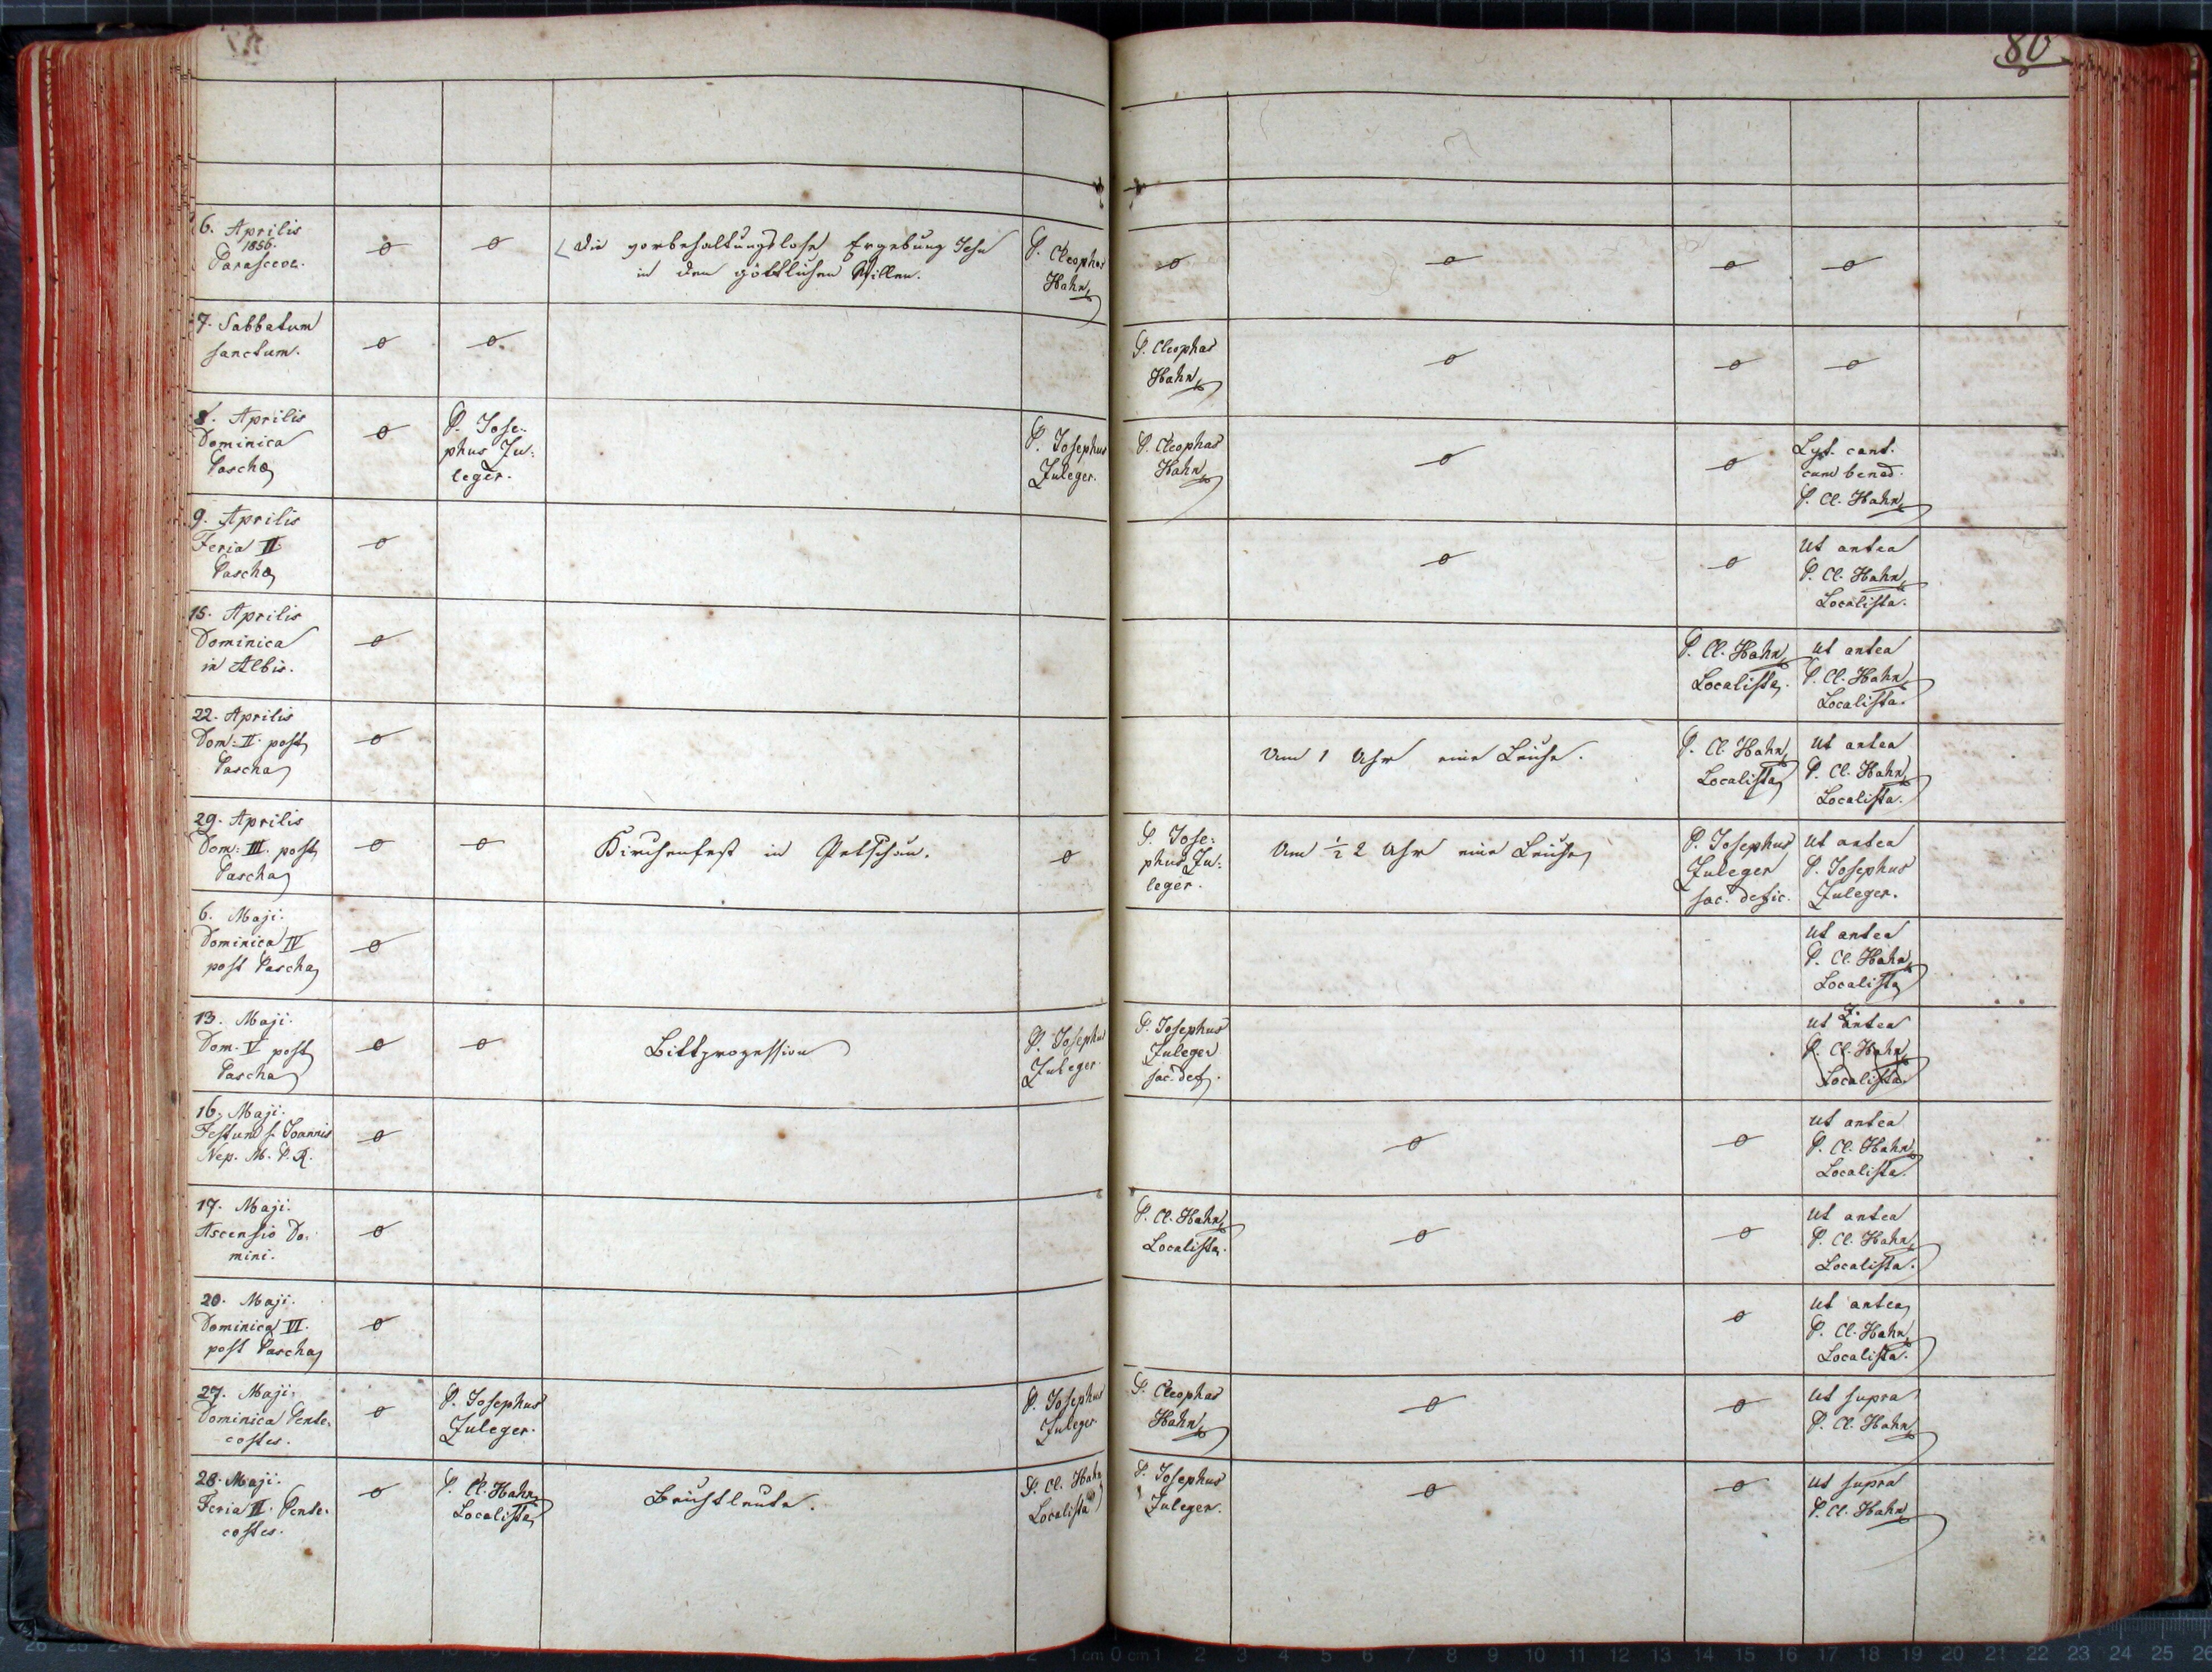 80
6. Aprilis
1856.
Parasceve.
Die vorbehaltungslose Ergebung Jesu
in den göttlichen Willen.
P. Cleophas
Hahn
7. Sabbatum
sanctum.
P. Cleophas
Hahn
8. Aprilis
Dominica
Pascha
P. Jose-
phus Zu-
leger.
P. Josephus
Zuleger.
P. Cleophas
Hahn
Lyt. cant.
cum bened.
P. Cl. Hahn
9. Aprilis
Feria II
Pascha
Ut antea
P. Cl. Hahn
Localista.
15. Aprilis
Dominica
in Albis.
P. Cl. Hahn
Localista.
ut antea
P. Cl. Hahn
Localista.
22. Aprilis
Dom: II. post
Pascha
Um 1 Uhr eine Leiche.
P. Cl. Hahn
Localista
Ut antea
P. Cl. Hahn
Localista.
29. Aprilis
Dom: III. post
Pascha
Kirchenfest in Petschau.
P. Jose-
phus Zu-
leger.
Um ½ 2 Uhr eine Leiche
P. Josephus
Zuleger
sac. defic.
Ut antea
P. Josephus
Zuleger.
6. Maji.
Dominica IV
post Pascha
Ut antea
P. Cl. Hahn
Localista
13. Maji.
Dom. V post
Pascha
Bittprozession
P. Josephus
Zuleger.
P. Josephus
Zuleger
sac. def.
Z.
ut antea
P. Cl. Hahn
Localista.
16. Maji.
Festum s. Joannis
Nep. M. P. R.
Ut antea
P. Cl. Hahn
Localista.
17. Maji.
Ascensio Do-
mini.
P. Cl. Hahn
Localista.
Ut antea
P. Cl. Hahn
Localista.
20. Maji.
Dominica VI.
post Pascha
Ut antea
P. Cl. Hahn
Localista.
27. Maji.
Dominica Pente-
costes.
P. Josephus
Zuleger.
P. Josephus
Zuleger
P. Cleophas
Hahn
Ut supra
P. Cl. Hahn
28. Maji.
Feria II. Pente-
costes.
P. Cl. Hahn
Localista
Beichtleute.
P. Cl. Hahn
Localista
P. Josephus
Zuleger.
Ut supra
P. Cl. Hahn